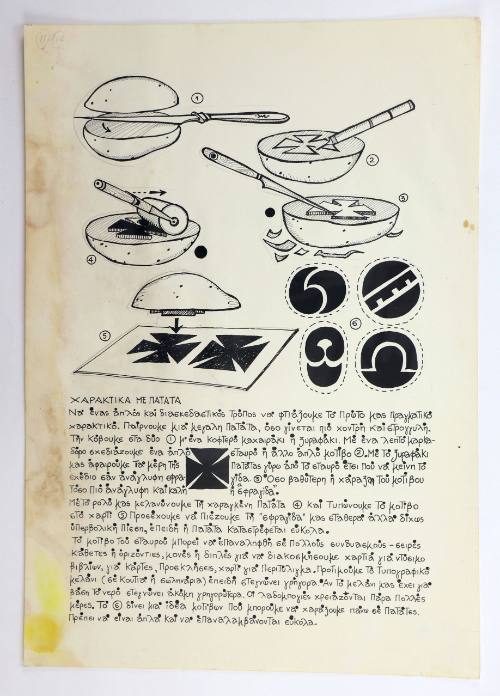 1
2
3
4
5
6
ΧΑΡΑΚΤΙΚΑ ΜΕ ΠΑΤΑΤΑ
Να ένας απλός και διασκεδαστικός τρόπος να φτιάξουμε το πρώτο μας πραγματικό
χαρακτικό. Παίρνουμε μια μεγάλη πατάτα, όσο γίνεται πιό χοντρή και στρογγυλή.
Την κόβουμε στα δύο 1 μ' ένα κοφτερό μαχαιράκι ή ξυραφάκι. Με ένα λεπτό μαρκα-
δόρο σχεδιάζουμε ένα απλό σταυρό ή άλλο απλό μοτίβο 2. Με το ξυραφάκι
μας αφαιρούμε τα μέρη της πατάτας γύρω από το σταυρό έτσι που να μείνη το
σχέδιο σαν ανάγλυφη σφρα- γίδα. 3 Όσο βαθύτερη ή χάραξη του μοτίβου
τόσο πιό ανάγλυφη και καλή ή σφραγίδα.
Με το ρολό μας μελανώνουμε τη χαραγμένη πατάτα 4 και τυπώνουμε το μοτίβο
στο χαρτί 5 Προσέχουμε να πιέζουμε τη "σφραγίδα" μας σταθερά αλλά δίχως
υπερβολική πίεση, επειδή ή πατάτα καταστρέφεται εύκολα.
Το μοτίβο του σταυρού μπορεί να επαναληφθή σε πολλούς συνδυασμούς - σειρές
κάθετες ή οριζόντιες, μονές ή διπλές για να διακοσμήσουμε χαρτιά για ντύσιμο
βιβλίων, για κάρτες, προσκλήσεις, χαρτί για περιτύλιγμα. Προτιμούμε το τυπογραφικό
μελάνι (σε κουτιά ή σωληνάρια) επειδή στεγνώνει γρήγορα. Αν το μελάνι μας έχει για
βάση το νερό στεγνώνει ακόμη γρηγορώτερα. Οι λαδομπογιές χρειάζονται πάρα πολλές
μέρες. Το 6 δίνει μια ιδέα μοτίβων που μπορούμε να χαράξουμε πάνω σε πατάτες.
Πρέπει να είναι απλά και να επαναλαμβάνονται εύκολα.